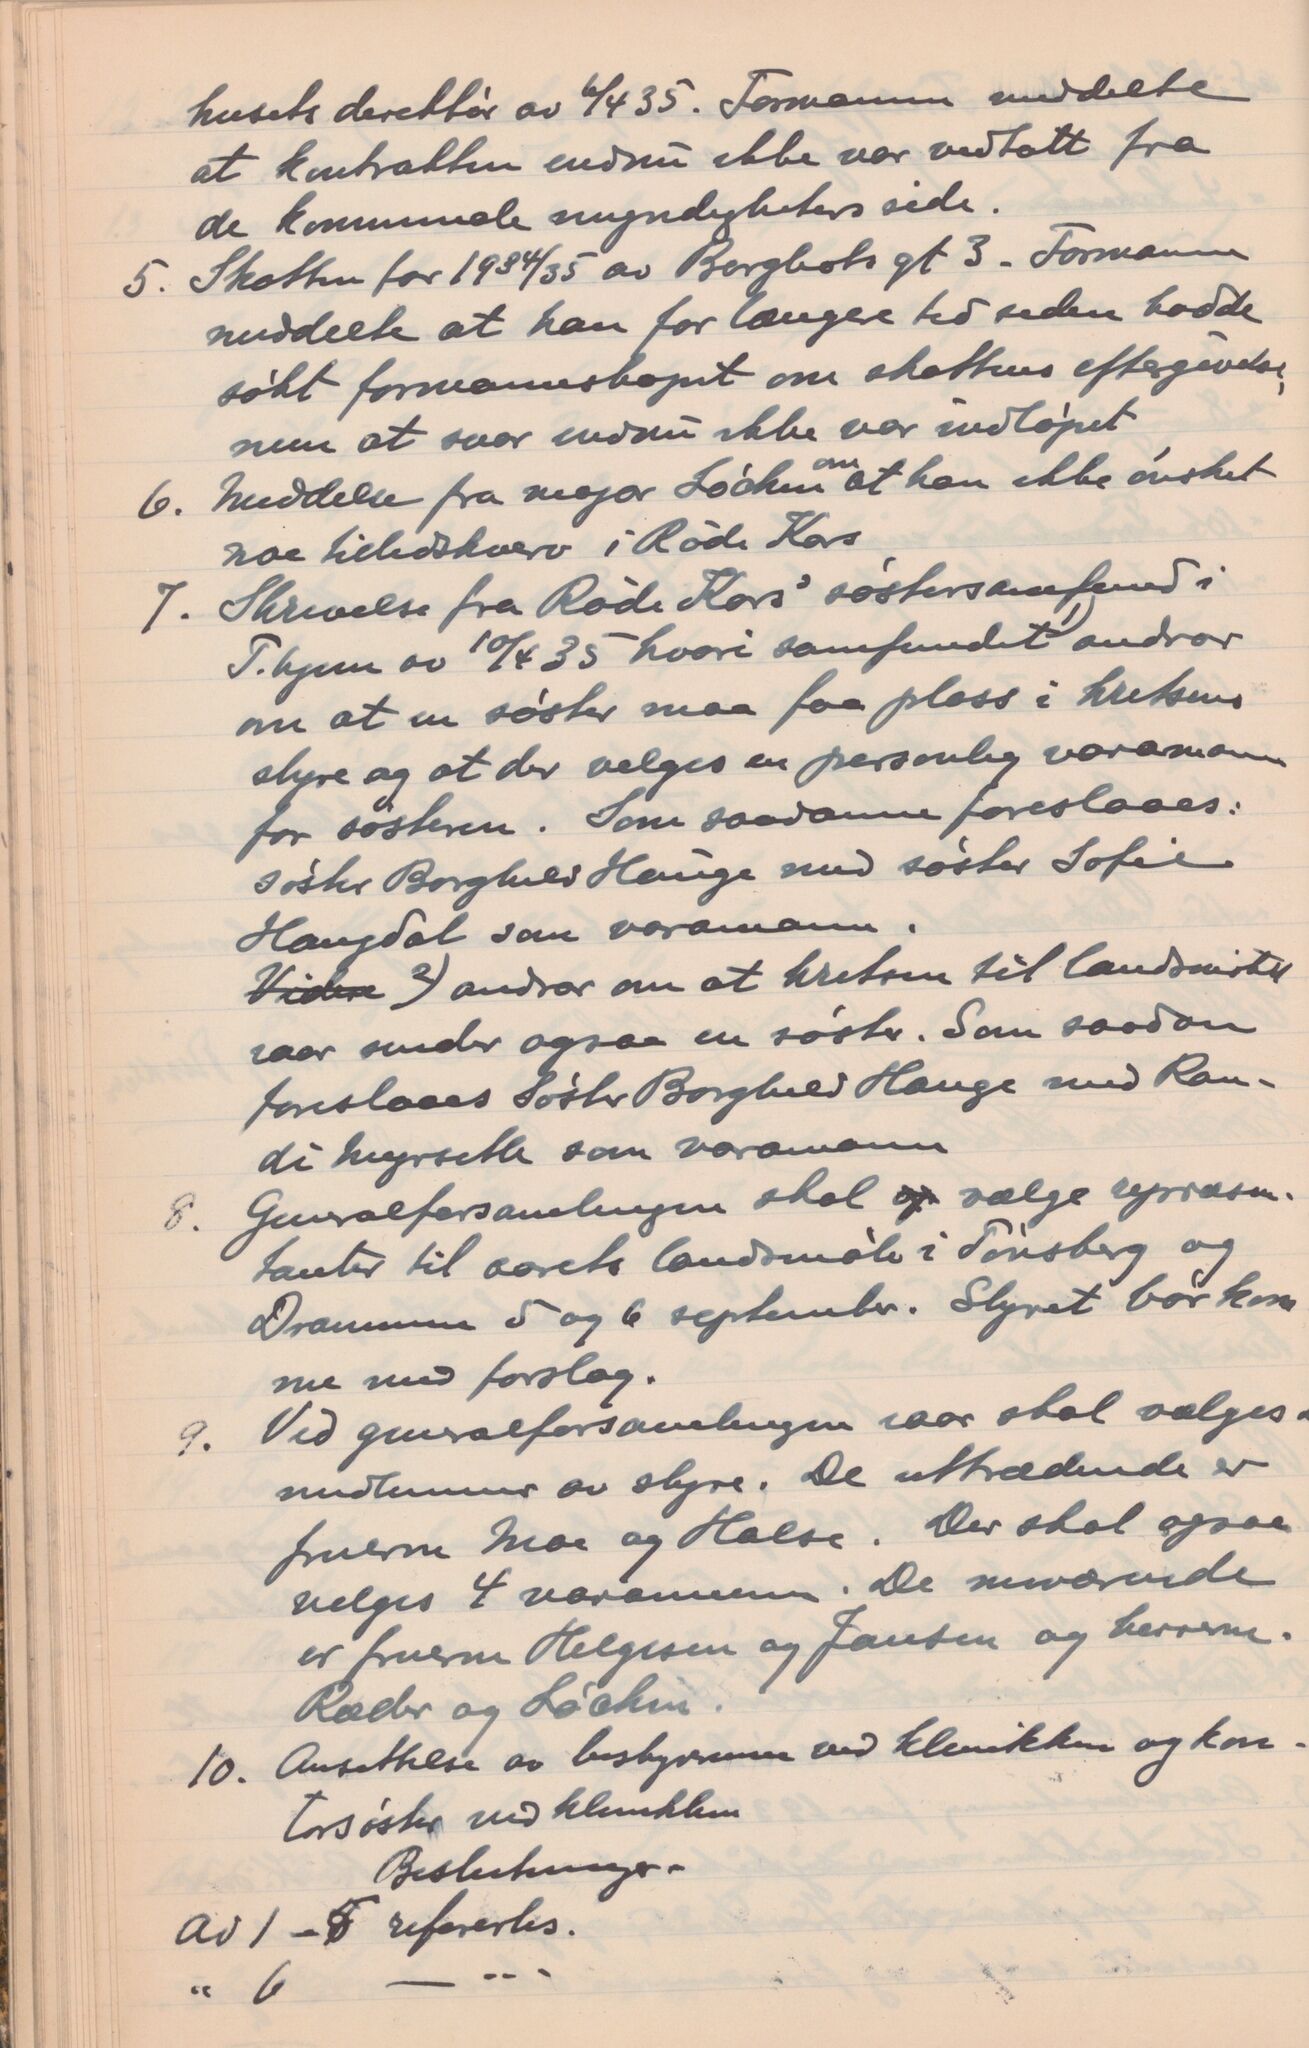 husets derektör av 6/4 35. Formannen meddelte
at kontrakten endnu ikke var vedtatt fra
de kommunale myndigheters side.
5. Skatten for 1934/35 av Borghots gt 3 - Formannen
meddelte at han for længere tid siden hadde
sökt formannskapet om skattens eftergivelse,
men at svar endnu ikke var indløpet
6. Meddelse fra major Löchen om at han ikke önsket
noe tillidshverv i Röde Kors
7. Skrivelse fra Röde Kors' söstersamfund i
T.hjem av 10/4 35 hvori samfundet 1) andrar
om at en söster maa faa plass i kretsens
styre og at der velges en personlig varamann
for sösteren. Som saadanne foreslaaes:
söster Borghild Hauge med söster Sofie
Haugdal som varamann.
Videre 2) andrar om at kretsen til landsmötet
iaar sender ogsaa en söster. Som saadan
foreslaaes Söster Borghild Hauge med Ran-
di Myrsette som varamann
8. Generalforsamlingen skal vælge repræsen-
tanter til aarets landsmöte i Tönsberg og
Drammen 5 og 6 september. Styret bör kom
me med forslag.
9. Ved generalforsamlingen iaar skal vælges 2
medlemmer av styre. De uttrædende er
fruerne Moe og Halse. Der skal ogsaa
velges 4 varamenn. De nuværende
er fruerne Helgesen og Jansen og herrerne
Ræder og Löchen.
10. Ansettelse av bestyrerinne ved klinikken og kon-
torsöster ved klinikken
Beslutninger.
Ad 1 - 5 referertes.
" 6 — " -